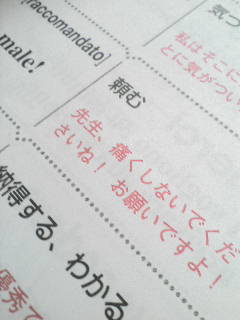 [raccomandato]
male!
気づ
私はそこに
とに気がつい
頼む
先生、痛くしないでくだ
さいね！ お願いですよ！
納得する、わかる
優秀で